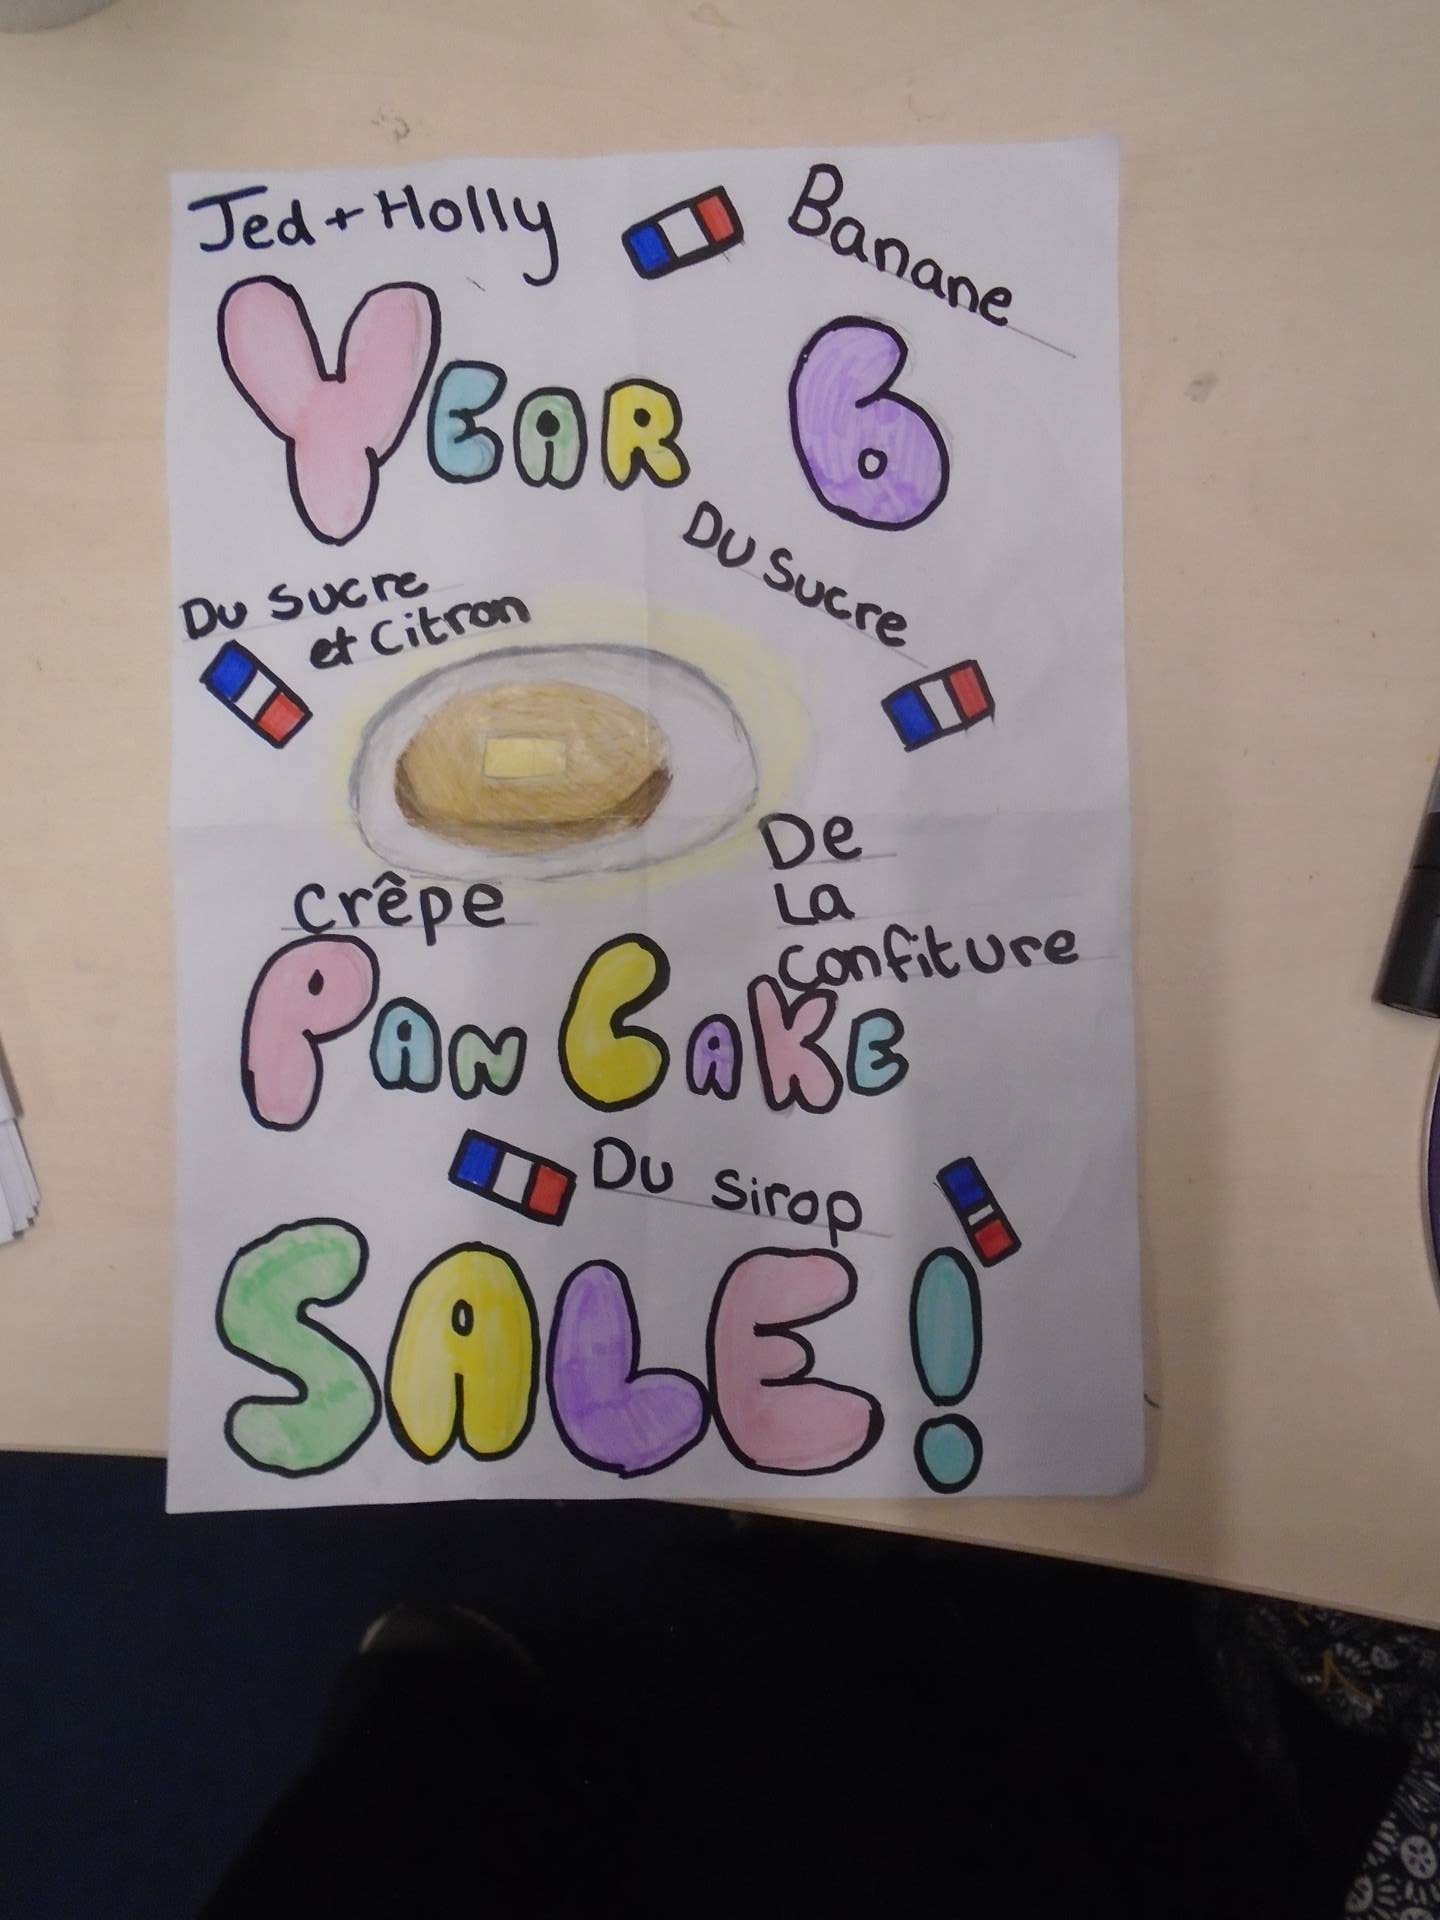 Jed + Holly
Banane
YEAR 6
Du Sucre
Du Sucre
et Citron
De
La
Confiture
Crêpe
PANCAKE
Du sirop
SALE!